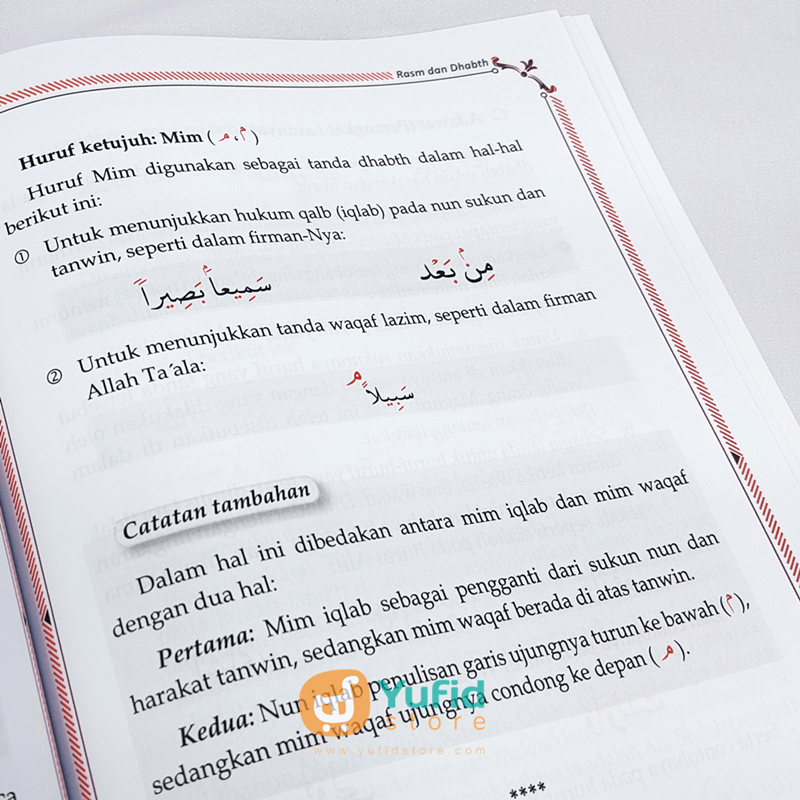 Rasm dan Dhabth
Huruf ketujuh: Mim (مۢ، مـ)
Huruf Mim digunakan sebagai tanda dhabth dalam hal-hal
berikut ini:
① Untuk menunjukkan hukum qalb (iqlab) pada nun sukun dan
tanwin, seperti dalam firman-Nya:
مِنۢ بَعْد سَمِيعاَۢ بَصِيراً
② Untuk menunjukkan tanda waqaf lazim, seperti dalam firman
Allah Ta´ala:
سَبِيلاًۘ
Catatan tambahan
Dalam hal ini dibedakan antara mim iqlab dan mim waqaf
dengan dua hal:
Pertama: Mim iqlab sebagai pengganti dari sukun nun dan
harakat tanwin, sedangkan mim waqaf berada di atas tanwin.
Kedua: Nun iqlab penulisan garis ujungnya turun ke bawah (م),
sedangkan mim waqaf ujungnya condong ke depan (مـ).
Yufid
store
www.yufidstore.com
****